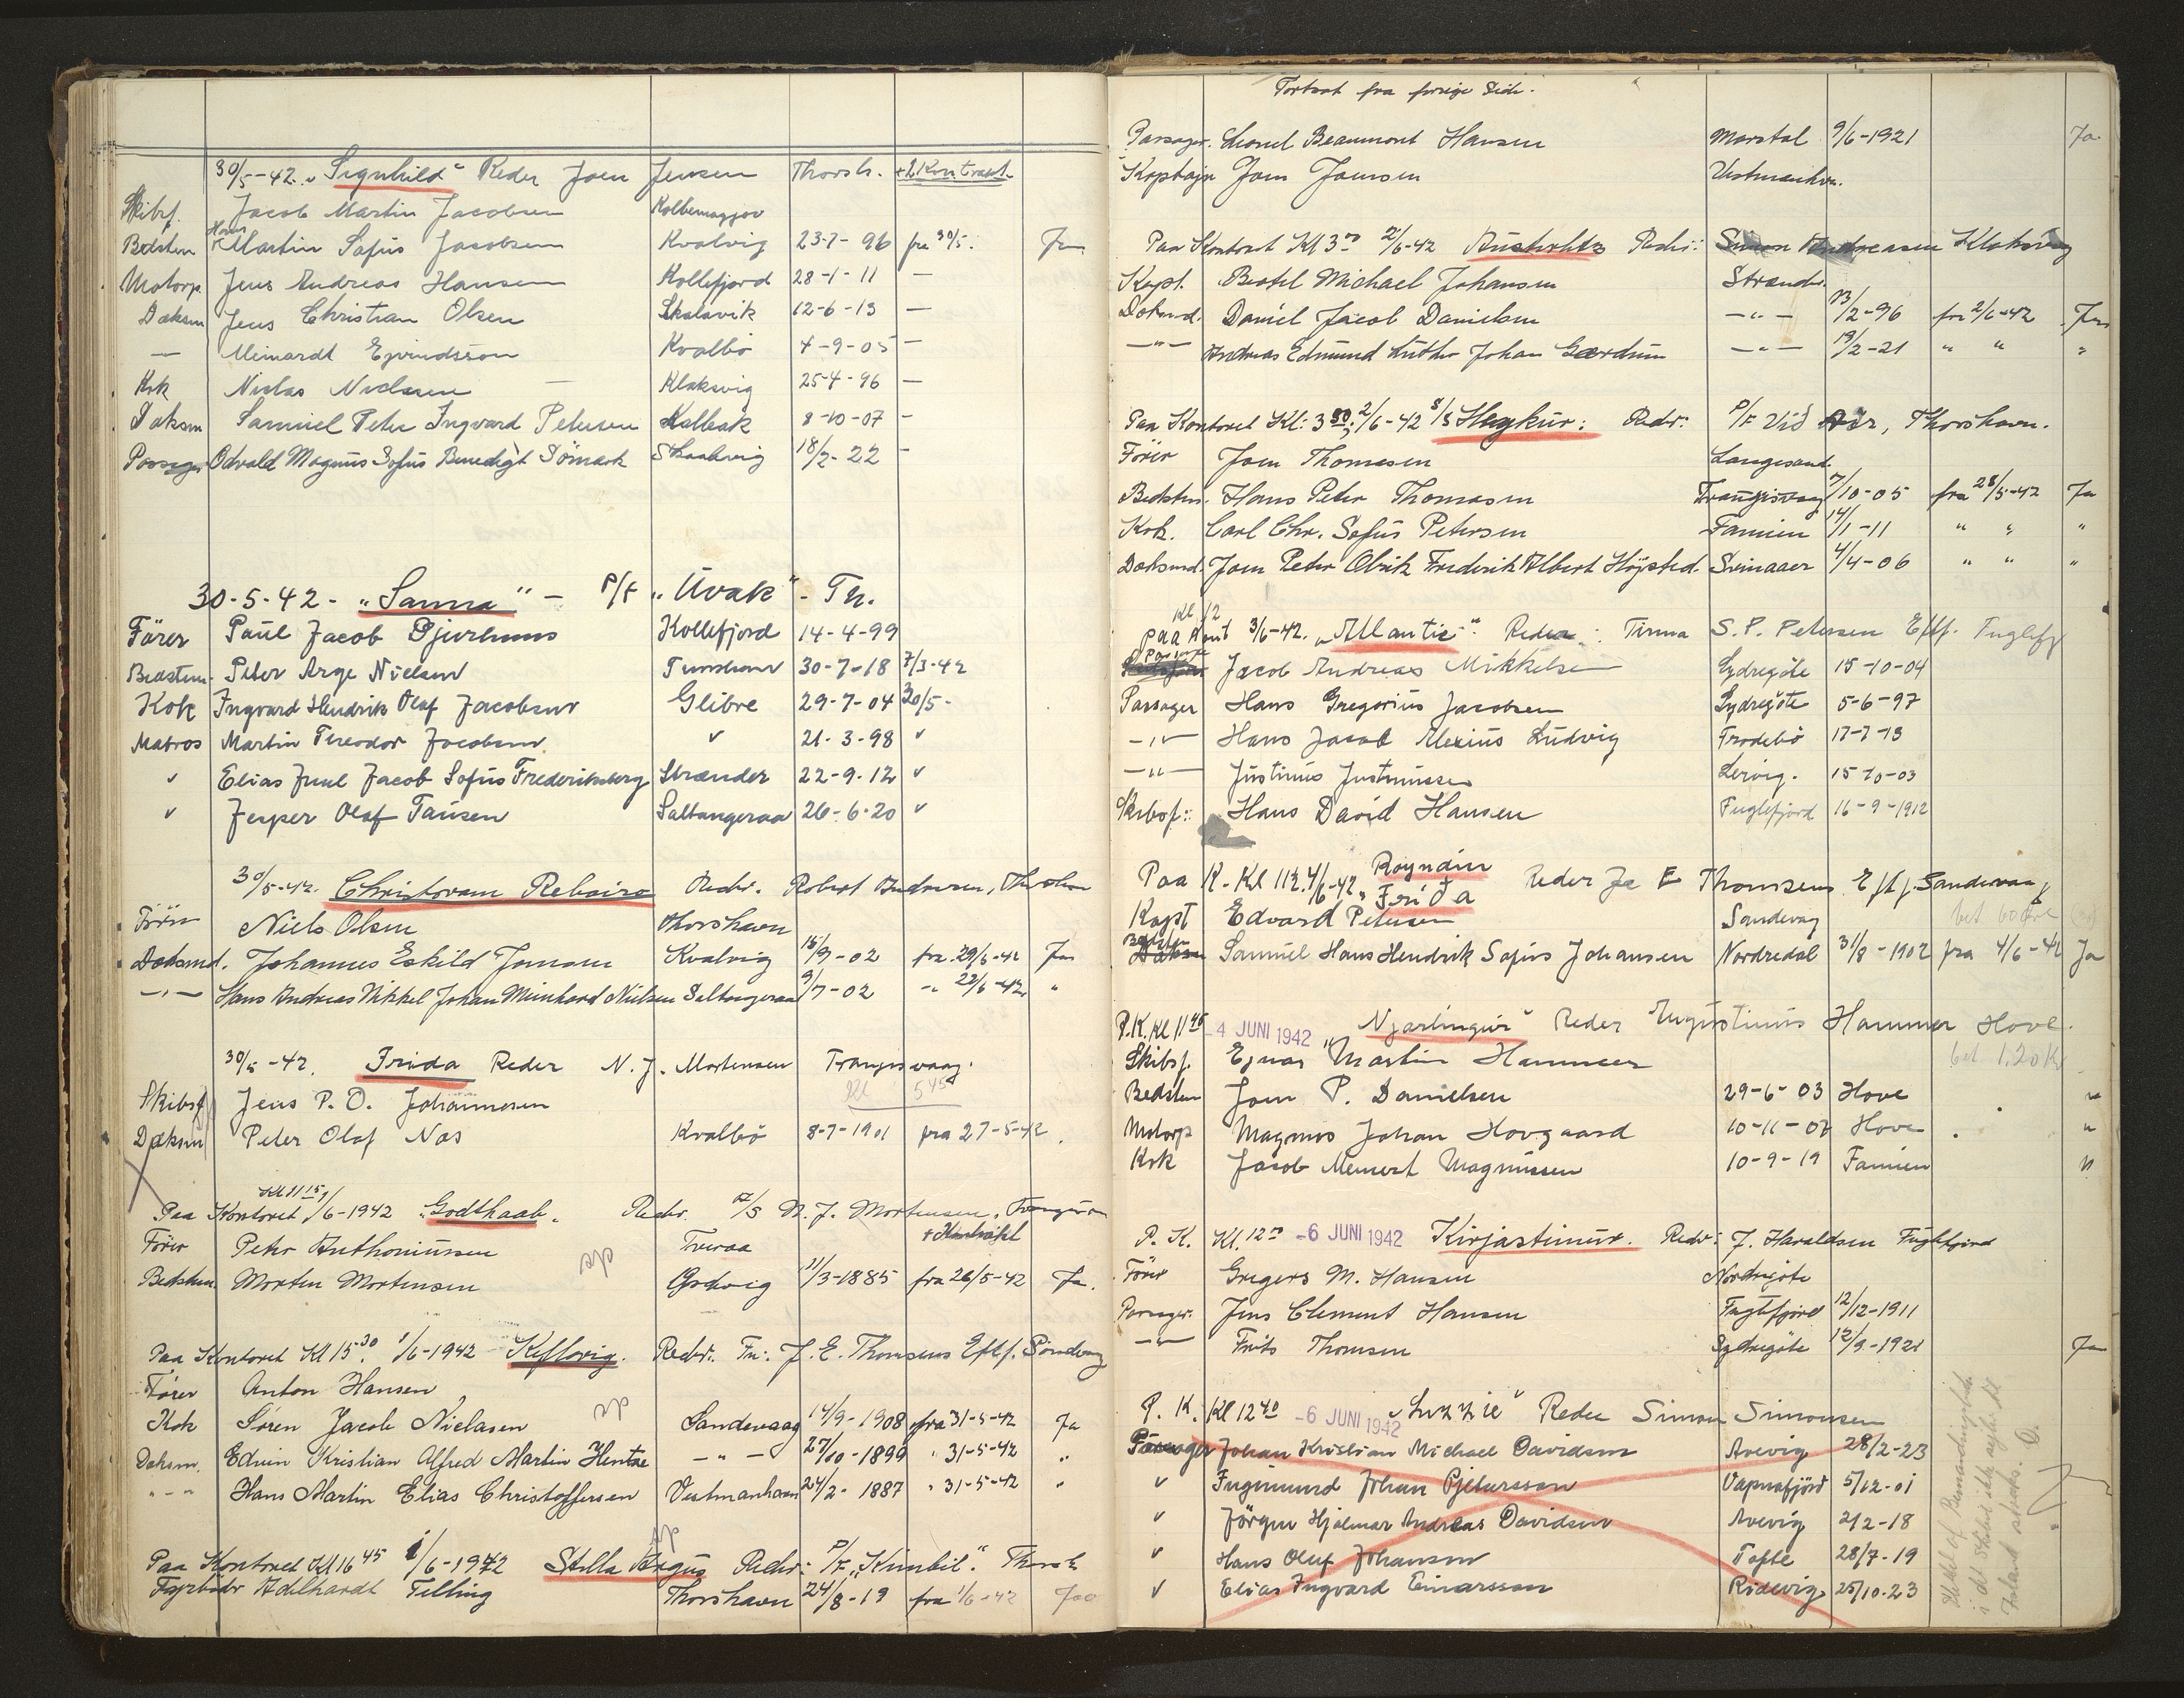 30/5-42. „Signhild" Reder Joen Jensen Thorsh. +2 Kontrakt.
Skibsf. Jacob Martin Jacobsen
Bedstem Hans Martin Sofus Jacobsen Kvalvig 23-7-96 fra 30/5.
Motorp Jens Andreas Hansen Kollefjord 28-1-11 —
Dæksm Jens Christian Olsen Skalavik 12-6-13 —
— Meinardt Ejvindsson Kvalbö 4-9-05 —
Kok Niclas Niclasen Klaksvig 25-4-96 —
Dæksm Samuel Peter Ingvard Petersen Kolbeak 8-10-07 —
Passager Odvald Magnus Sofus Benedigt Sömark Skaalevig 18/2-22 —
30-5-42- „Sanna" - P/F „Uvak" - Th.
Förer Paul Jacob Djurhuus Kollefjord 14-4-99
Bedstem. Peter Arge Nielsen 30-7-18 7/3-42
Kok Ingvard Hendrik Olaf Jacobsen Glibre 29-7-04 30/5-
Matros Martin Theodor Jacobsen. ✓ 21-3-98 ✓
✓ Elias Juul Jacob Sofus Frederiksberg Strænder 22-9-12 ✓
✓ Jesper Olaf Tausen Saltangeraa 26-6-20 ✓
30/5-42. Christovam Rebeiro Reder. Robert Andreasen, Thorshavn
Förer Niels Olsen Thorshavn
Dæksmd. Johannes Eskild Joensen Kvalvig 15/9-02
—"— Hans Andreas Mikkel Johan Meinhard Nielsen Saltangeraa 9/7-02
30/5-42. Frida Reder N. J. Mortensen Trangisvaag.
Skibsf Jens P. O. Johannesen
Dæksm Peter Olaf Næs Kvalbö 8-7-1901 fra 27-5-42.
Kl 11 15
Paa Kontoret 1/6-1942 „Godthaab„ Reder. A/S N. J. Mortensen, Trangisva
+ Kontrakt
Förer Peter Anthoniussen Tveraa
Bedstem. Morten Mortensen 11/3-1885 fra 26/5-42 Ja.
Paa Kontoret Kl 15 30. 1/6-1942 Keflavig. Reder. Fa: J. E. Thomsens Eftf. Sandvaag
Förer Anton Hansen
Kok Sören Jacob Niclasen Sandevaag 14/9-1908 fra 31-5-42 Ja
Dæksm. Edvin Kristian Alfred Martin Hentze —"— 27/10-1899 " 31-5-42 "
-"- Hans Martin Elias Christoffersen Vestmanhavn 24/2-1887 " 31-5-42 "
Paa Kontoret Kl 16 45 1/6-1942 Stella Argus Reder: P/F „Kimbil." Thorsh
Fyrböder Adelhardt Telling Thorshavn 24/8-19 fra 1/6-42
Fortsat fra forrige Side.
Passager. Lionel Beaumont Hansen Marstal 9/6-1921 Ja.
Kaptajn Joen Joensen Vestmanhvn.
Paa Kontoret Kl 3 2/6-42 Austerlitz Reder: Simon Andreassen Klaksvig
Kapt. Bertel Michael Johansen Strænder.
Dæksmd. Daniel Jacob Danielsen —"— 23/2-96 fra 2/6-42 Ja
—"— Andreas Edmund Luther Johan Gærdum —"— 19/2-21 " " "
Paa Kontoret Kl: 3 30; 2/6-42 S/S Haykur: Reder: P/F Við Áir, Thorshavn.
Förer Joen Thomasen Langesand.
Bedstem. Hans Peter Thomasen Trangisvaag 7/10-05 fra 28/5-42 Ja
Kok. Carl Chr. Sofus Petersen Famien 14/1-11 " " "
Dæksmd. Joen Peter Olrik Frederik Albert Höjsted. Svinaaer 4/4-06 " " "
Kl. 12
Paa Kont 3/6-42. „Atlantic" Reder: Firma S. P. Petersen Eftf. Fuglefj
Jacob Andreas Mikkelsen Sydregöte 15-10-04
Passager Hans Gregorius Jacobsen Sydregöte 5-6-97
—"— Hans Jacob Alexius Ludvig Frodebö 17-7-13
—"— Justinus Justinussen Lervig. 15-10-03
Skibsf: Hans David Hansen Fuglefjord 16-9-1912
Paa K. Kl 11 4/6-42 „Royndin Frida Reder J E Thomsens Eftf. Sandevaag
Kapt Edvard Petersen Sandevag
Samuel Hans Hendrik Sofus Johansen Nordredal 31/8-1902 fra 4/6-42 Ja
P.K. Kl 11 45 -4 JUNI 1942 „Njarlingur" Reder Augustinus Hammer Hove.
Skibsf. Ejnar Martin Hammer bet 1.20 Kr
Bedstem Joen P. Danielsen 29-6-03 Hove "
Motorp Magnus Johan Hovgaard 10-11-07 Hove "
Kok Jacob Meinert Magnussen 10-9-19 Famien "
P. K. Kl. 12 -6 JUNI 1942 Kirjasteinur. Reder: J. Haraldsen Fuglefjord
Förer Gregers M. Hansen Nordregöte
Passager. Jens Clement Hansen Fuglefjord 12/12-1911
—"— Frits Thomsen Sydregöte 12/9-1921 Ja
P. K. Kl 12 40 -6 JUNI 1942 „Suzzie" Reder Simon Simonsen
Passager Johan Kristian Michael Davidsen Avevig 28/2-23
✓ Ingimund Johan Pjetursson Vapnafjörd 5/12-01
✓ Jörgen Hjalmar Andreas Davidsen Avevig 2/2-18
✓ Hans Oluf Johansen Tofte 28/7-19
✓ Elias Ingvard Einarsson Ridevig 25/10-23